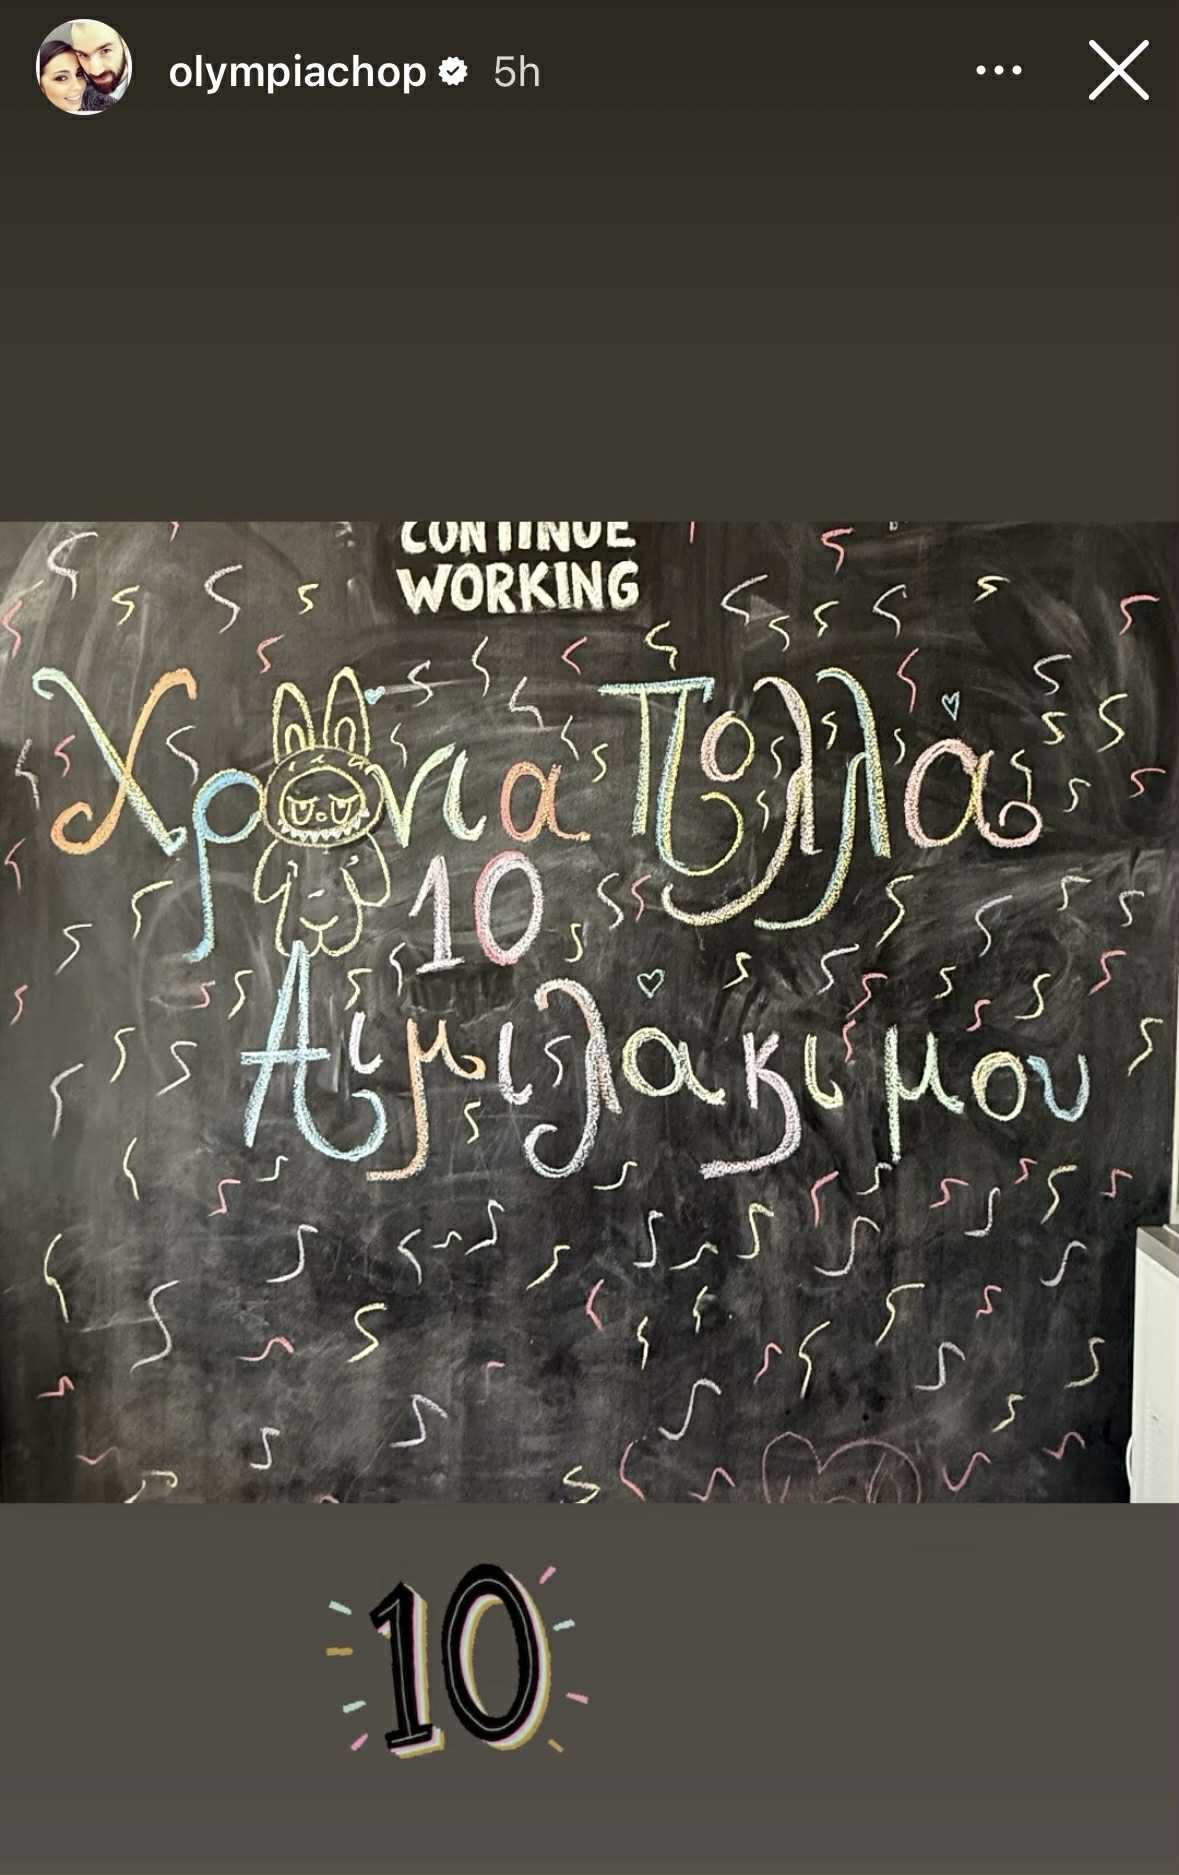 olympiachop 5h
CONTINUE
WORKING
Χρόνια Πολλά
10
Αιμιλάκι μου
10